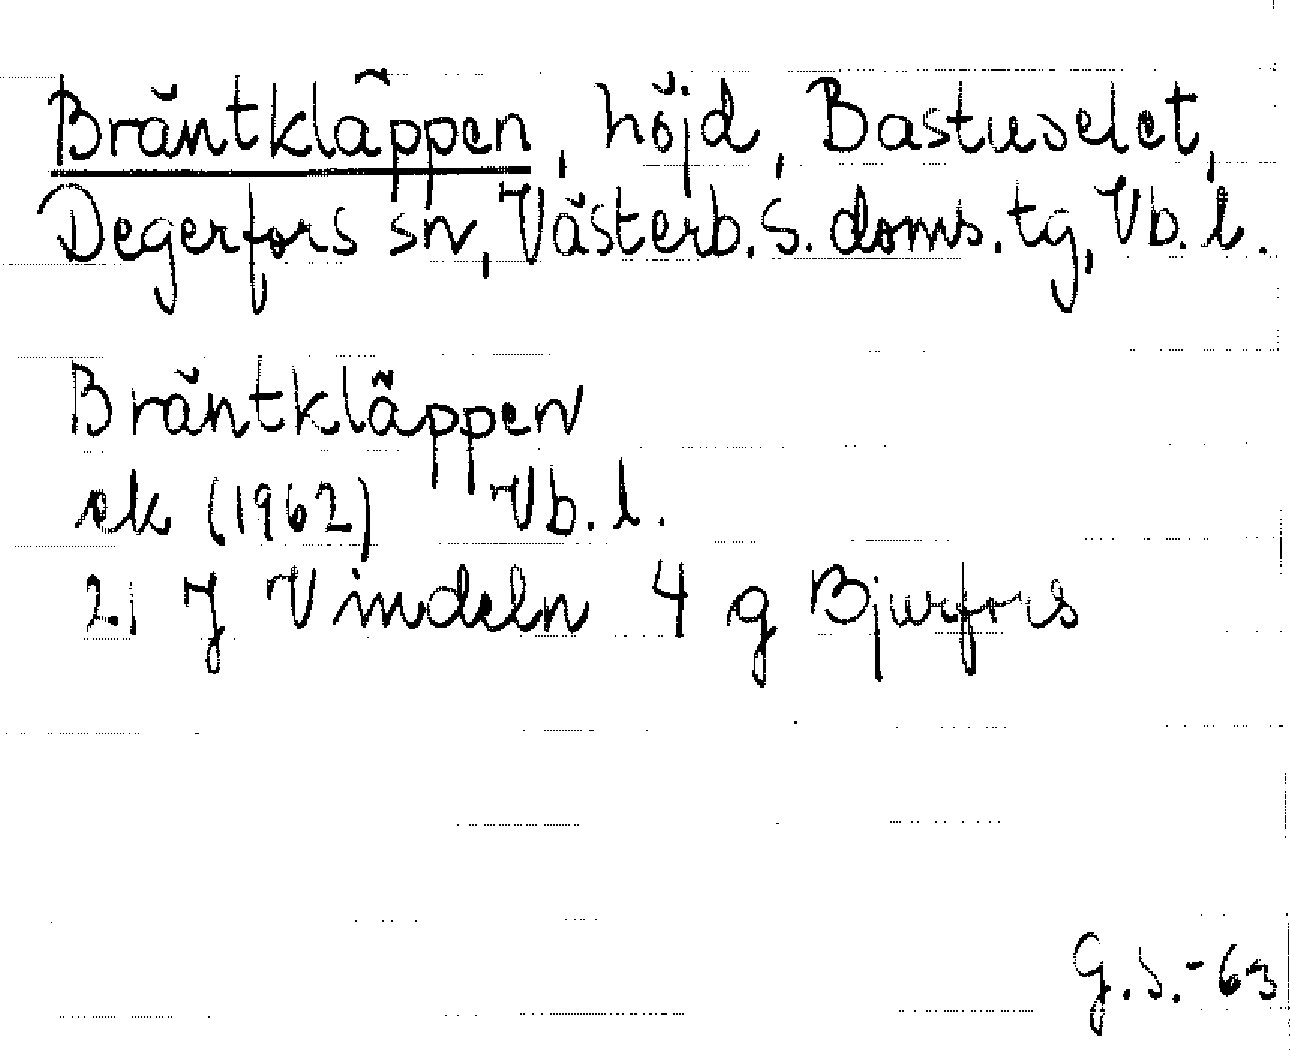 Bräntkläppen, höjd, Bastuselet,
Degerfors sn, Västerb. s. doms. tg, Vb. l.
Bräntkläppen
ek (1962) Vb. l.
21 J Vindeln 4 g Bjurfors
G.S.-63